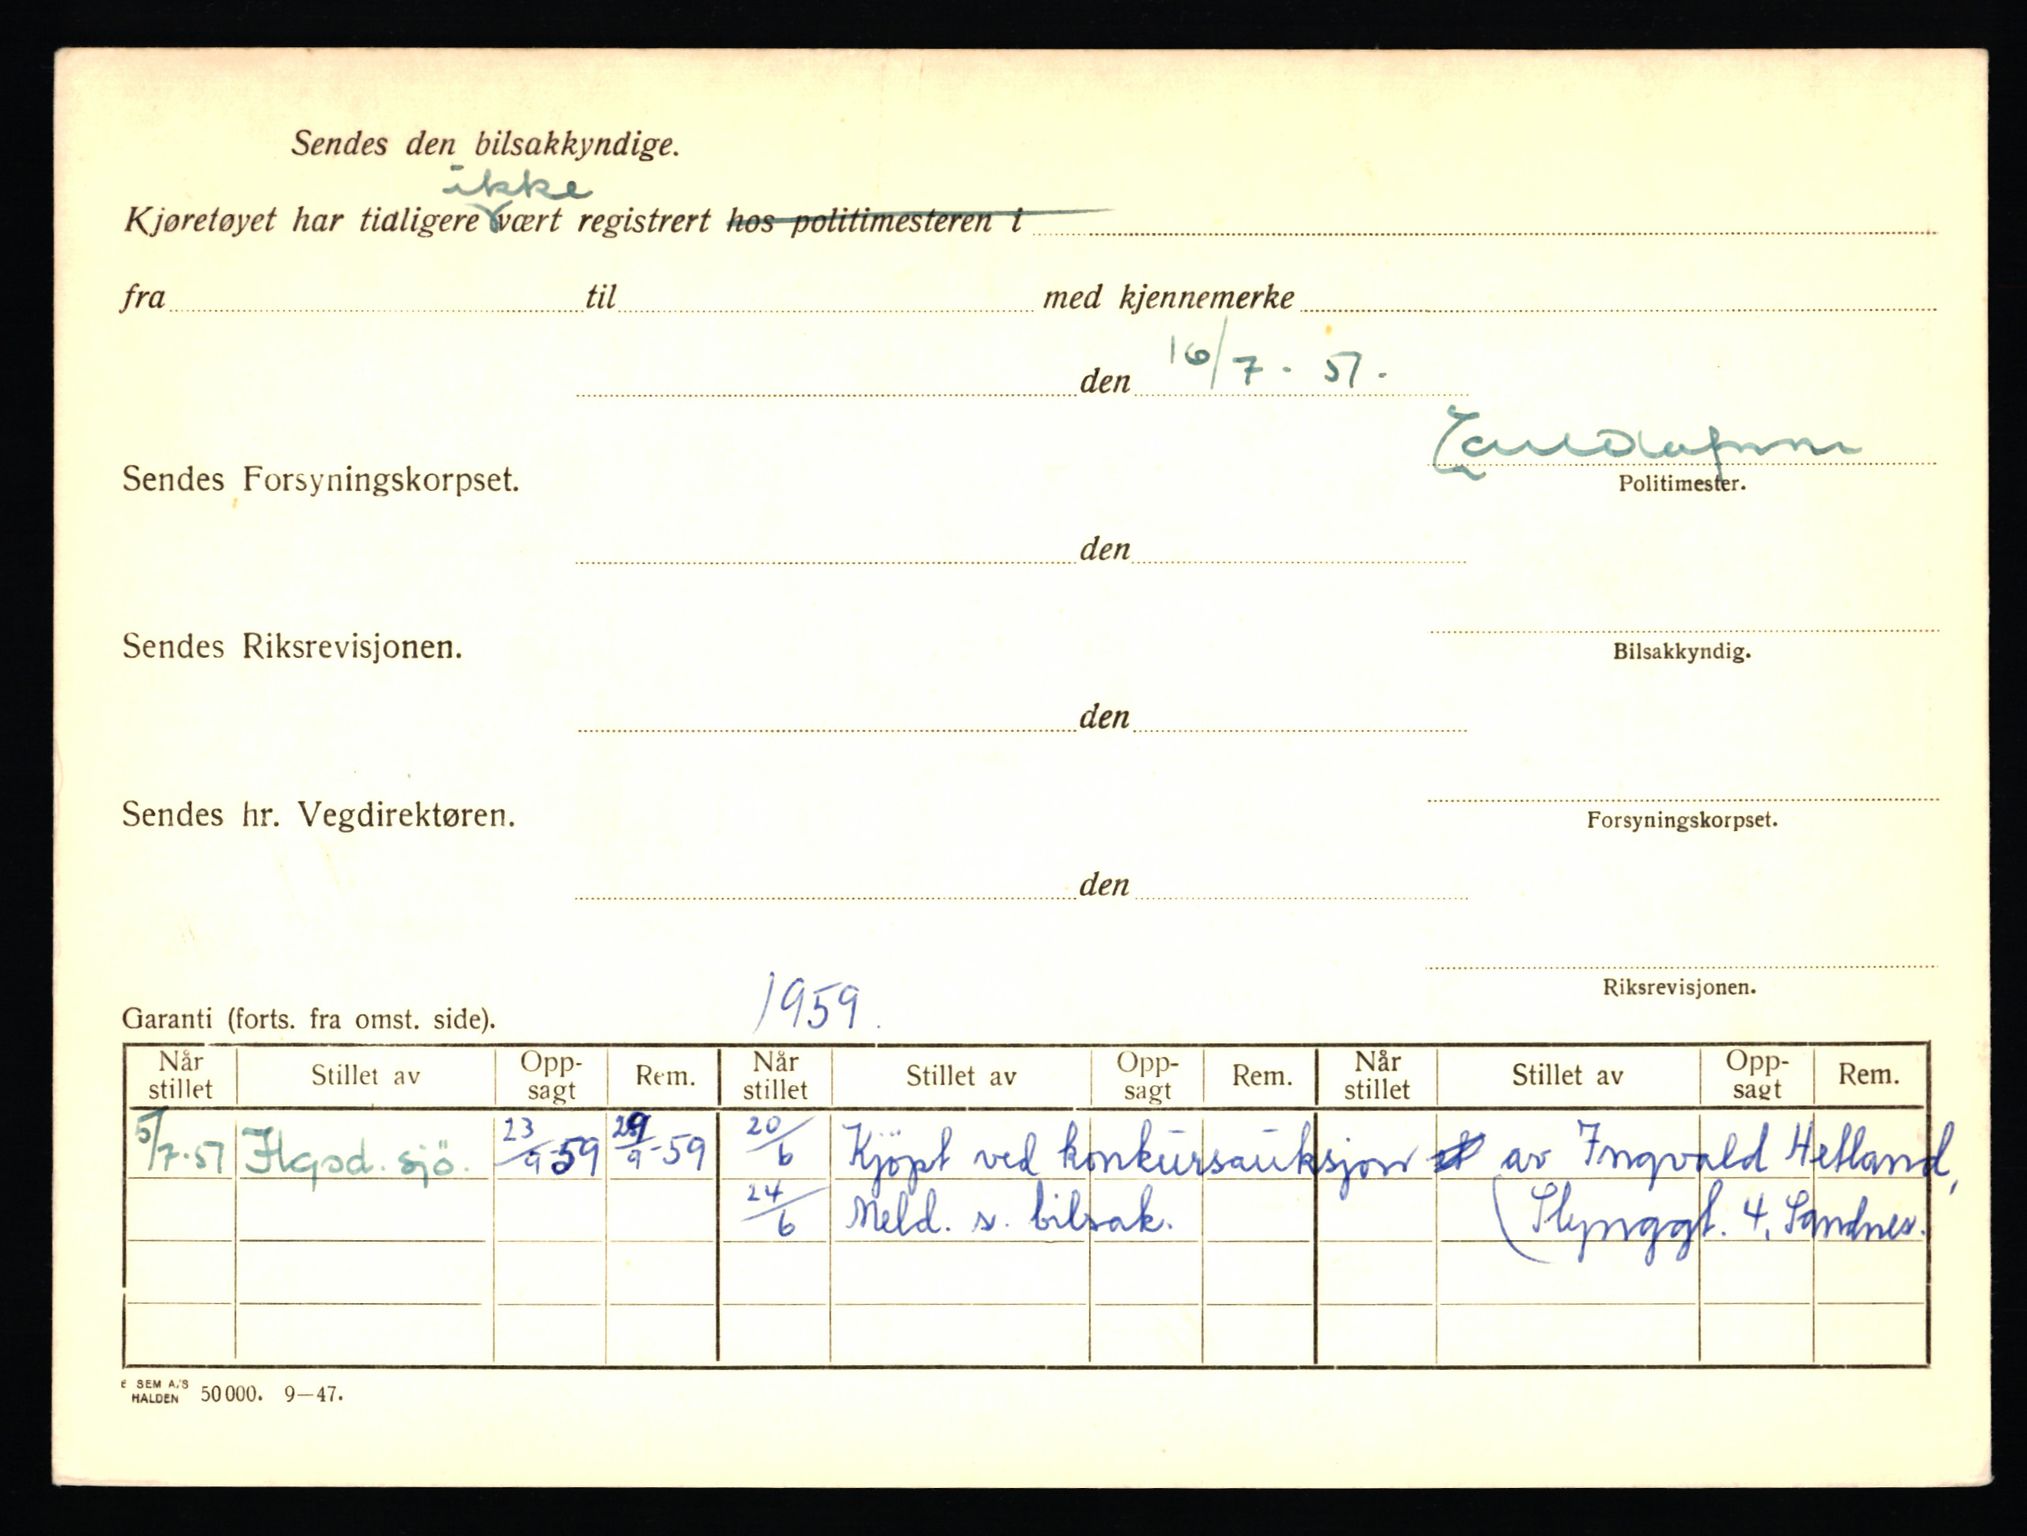 Sendes den bilsakkyndige.
ikke
Kjøretøyet har tidligere vært registrert hos politimesteren i
fra til med kjennemerke
den 16/7 - 51.
Politimester.
Sendes Forsyningskorpset.
den
Sendes Riksrevisjonen.
Bilsakkyndig.
den
Sendes hr. Vegdirektøren.
Forsyningskorpset.
den
Riksrevisjonen.
Garanti (forts. fra omst. side). 1959.
Når stillet Stillet av Opp-sagt Rem. Når stillet Stillet av Opp-sagt Rem. Når stillet Stillet av Opp-sagt Rem.
5/7-51 Hgsd. sjö. 23/9-59 29/9-59 20/6 Kjöpt ved konkursauksjon av Ingvald Hetland,
24/6 Meld. s. bilsak. 4, Sandnes.
E SEM A/S HALDEN 50 000. 9—47.